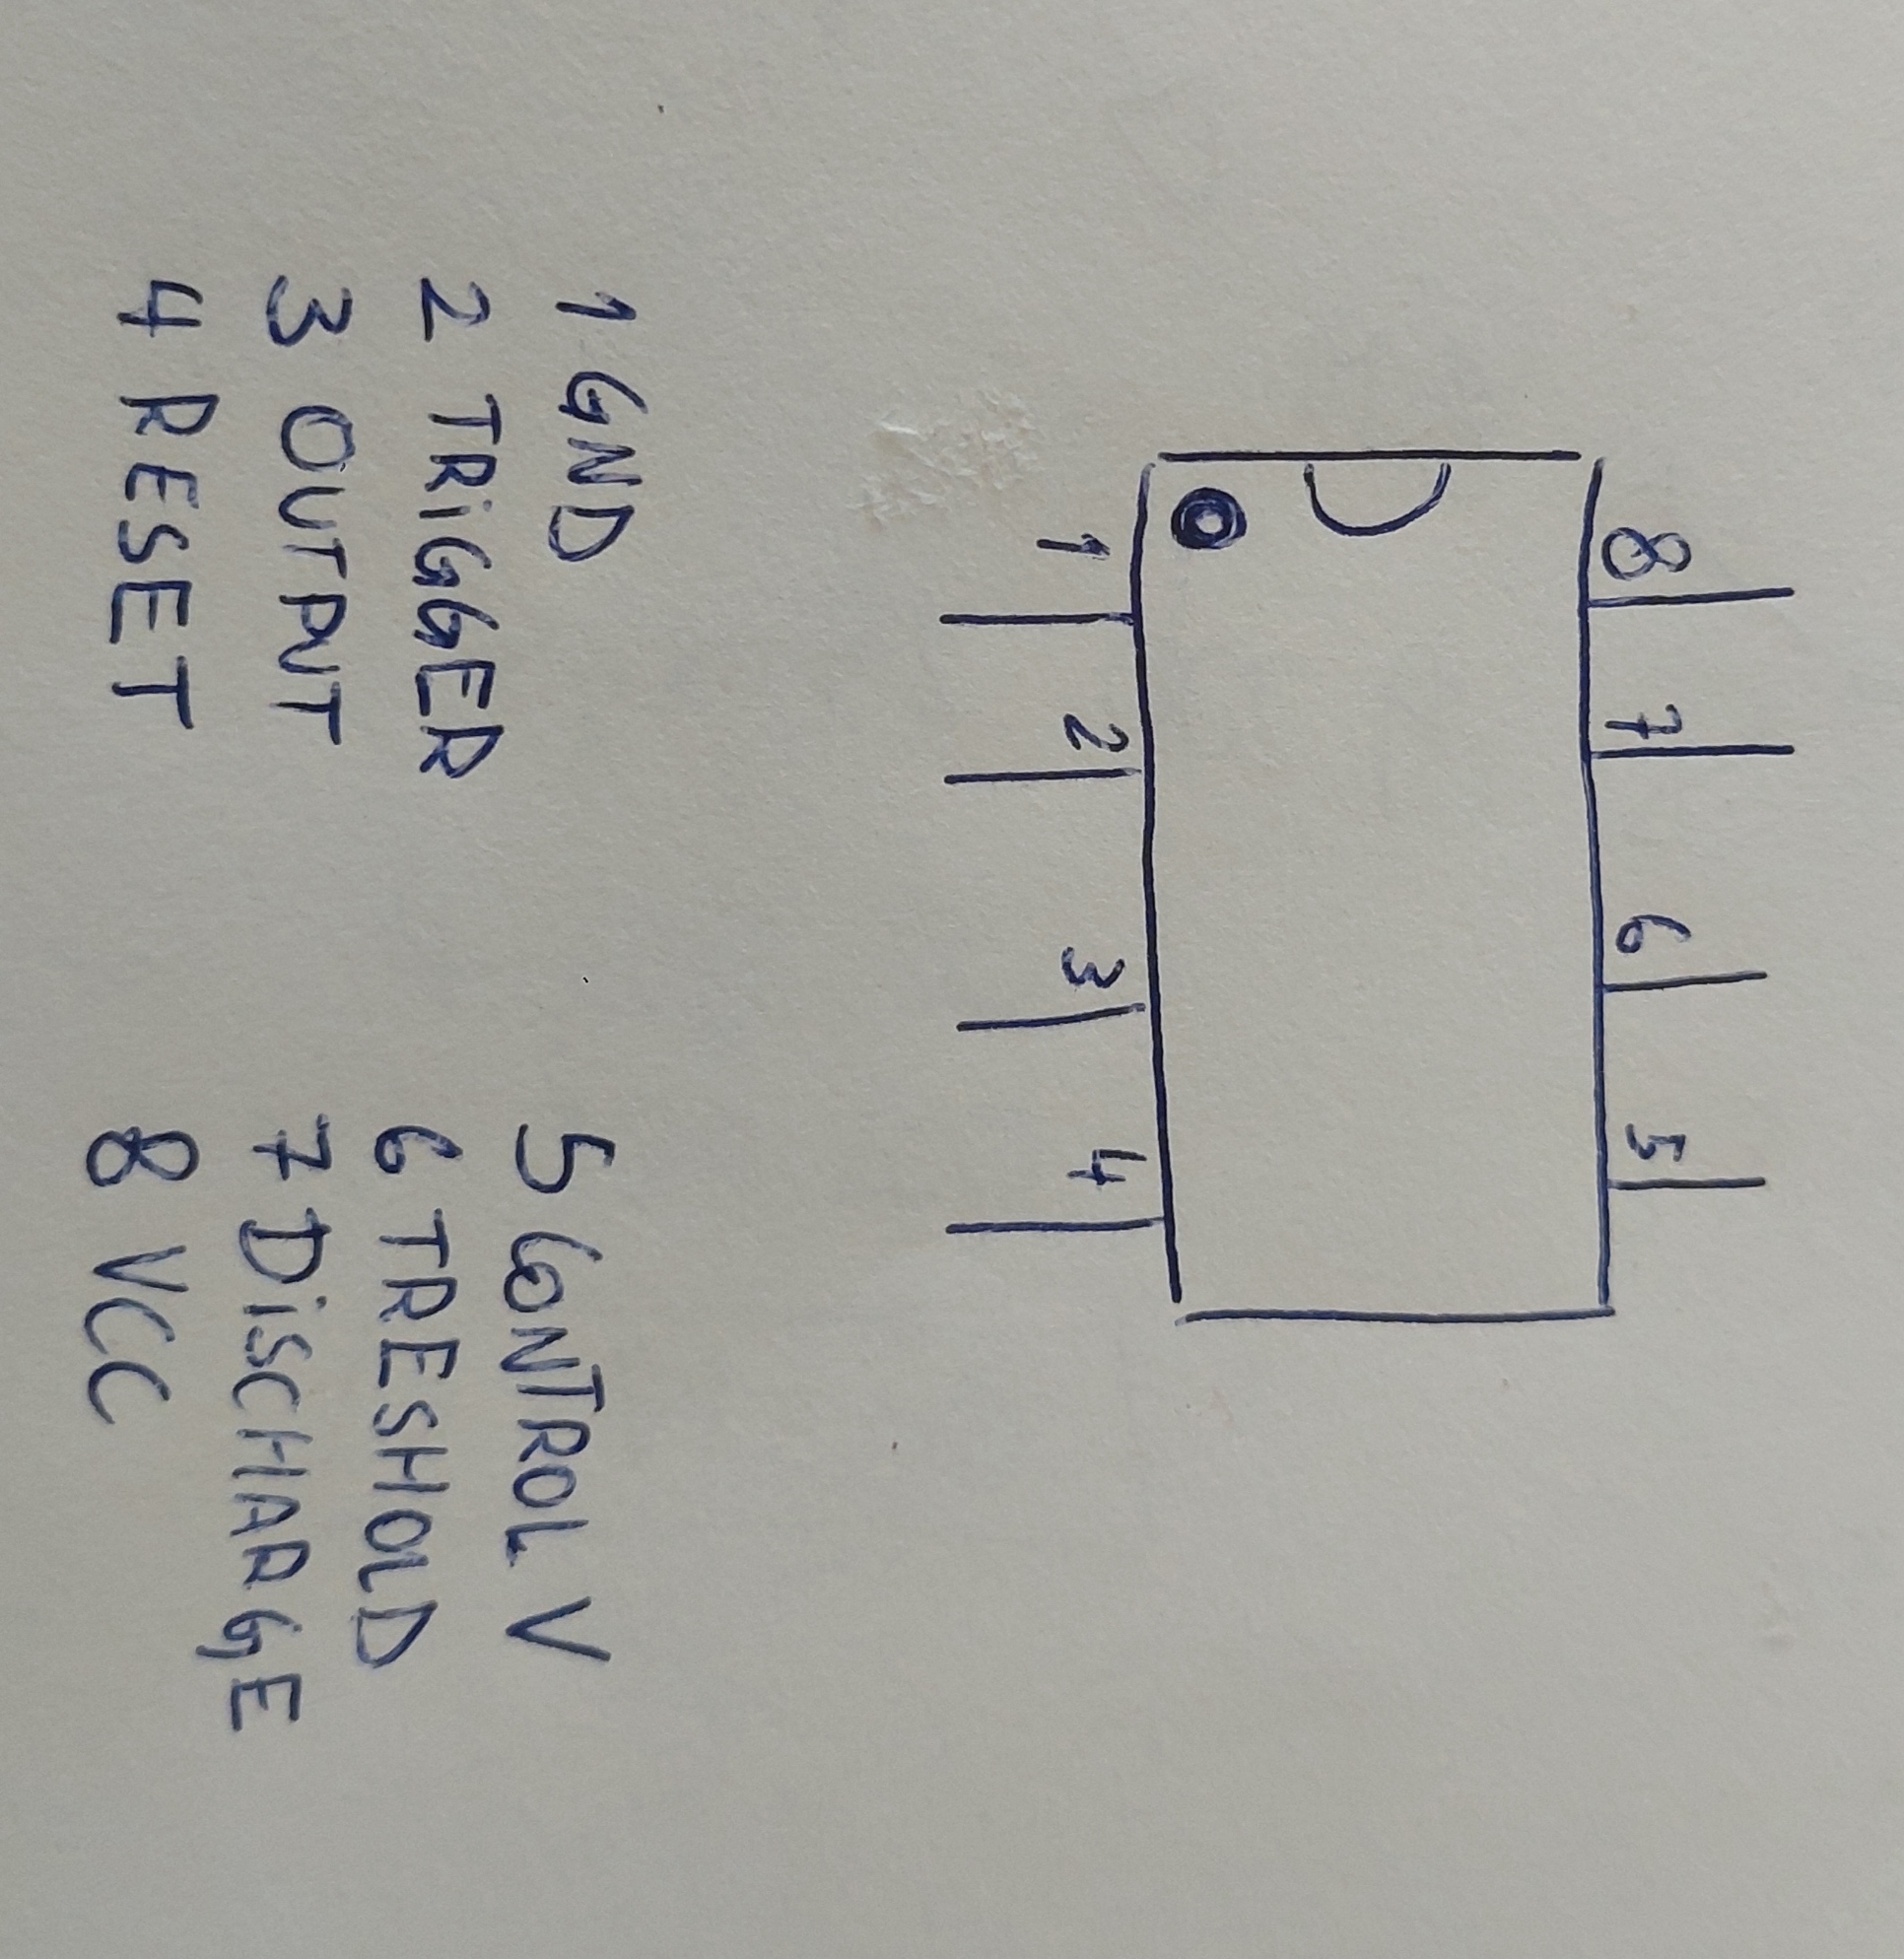 8 7 6 5
1 2 3 4
1 GND
2 TRiGGER
3 OUTPUT
4 RESET
5 CONTROL V
6 TRESHOLD
7 DiSCHARGE
8 VCC